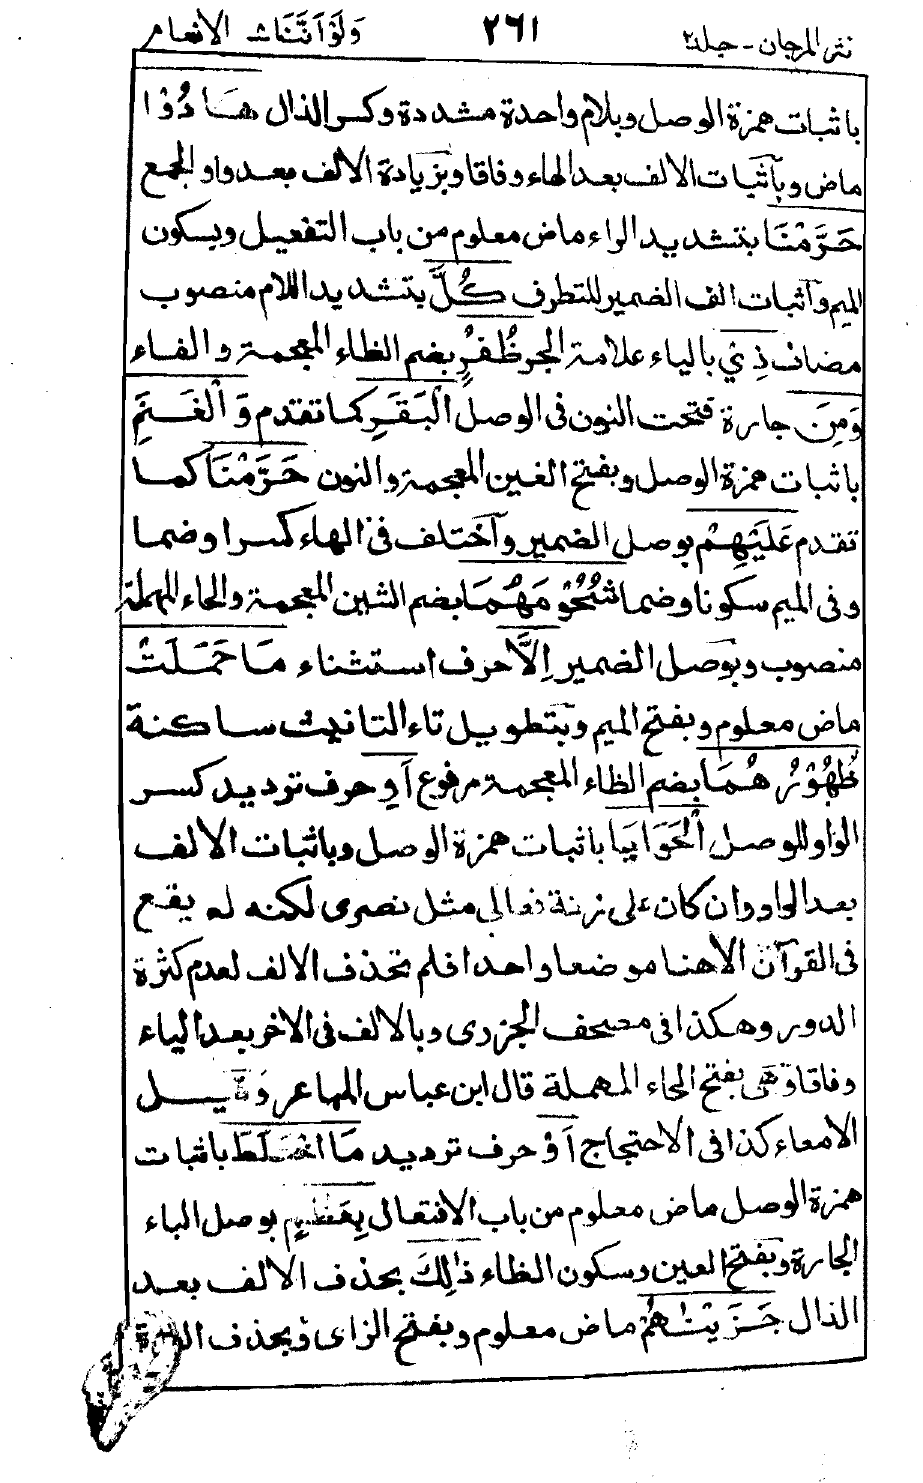 نثر المرجان - جلد ٢ ٢٦١ وَلَوْ أَنَّنَا الانعام
باثبات همزة الوصل وبلام واحدة مشددة وكسر الذال هَادُوْا
ماض وبآثبات الالف بعد الهاء وفاقا وبزيادة الالف بعد واو الجمع
حَرَّمْنَا بتشديد الراء ماض معلوم من باب التفعيل وبسكون
الميم وآثبات الف الضمير للتطرف كُلَّ بتشديد اللام منصوب
مضاف ذِيْ بالياء علامة الجر ظُفُرٍ بضم الظاء المعجمة والفاء
وَمِنَ جارة فتحت النون فى الوصل الْبَقَرِ كما تقدم وَالْغَنَمِ
باثبات همزة الوصل وبفتح الغين المعجمة والنون حَرَّمْنَا كما
تقدم عَلَيْهِمْ بوصل الضمير وآختلف فى الهاء كسرا وضما
وفى الميم سكونا وضما شُحُوْمَهُمَا بضم الشين المعجمة والحاء المهملة
منصوب وبوصل الضمير اِلَّا حرف استثناء مَا حَمَلَتْ
ماض معلوم وبفتح الميم وبتطويل تاء التانيث ساكنة
ظُهُوْرُهُمَا بضم الظاء المعجمة مرفوع اَوِ حرف ترديد كسر
الواو للوصل الْحَوَايَا باثبات همزة الوصل وباثبات الالف
بعد الواو وان كان على زنة تعالى مثل نصرى لكنه لم يقع
فى القرآن الا هنا موضعا واحدا فلم تحذف الالف لعدم كثرة
الدور وهكذا فى مصحف الجزرى وبالالف فى الاخر بعد الياء
وفاقا وهى بفتح الحاء المهملة قال ابن عباس المباعر وقيل
الامعاء كذا فى الاحتجاج اَوْ حرف ترديد مَا اخْتَلَطَ باثبات
همزة الوصل ماض معلوم من باب الافتعال بِعَظْمٍ بوصل الباء
الجارة وبفتح العين وسكون الظاء ذٰلِكَ بحذف الالف بعد
الذال جَزَيْنٰهُمْ ماض معلوم وبفتح الزاى وبحذف